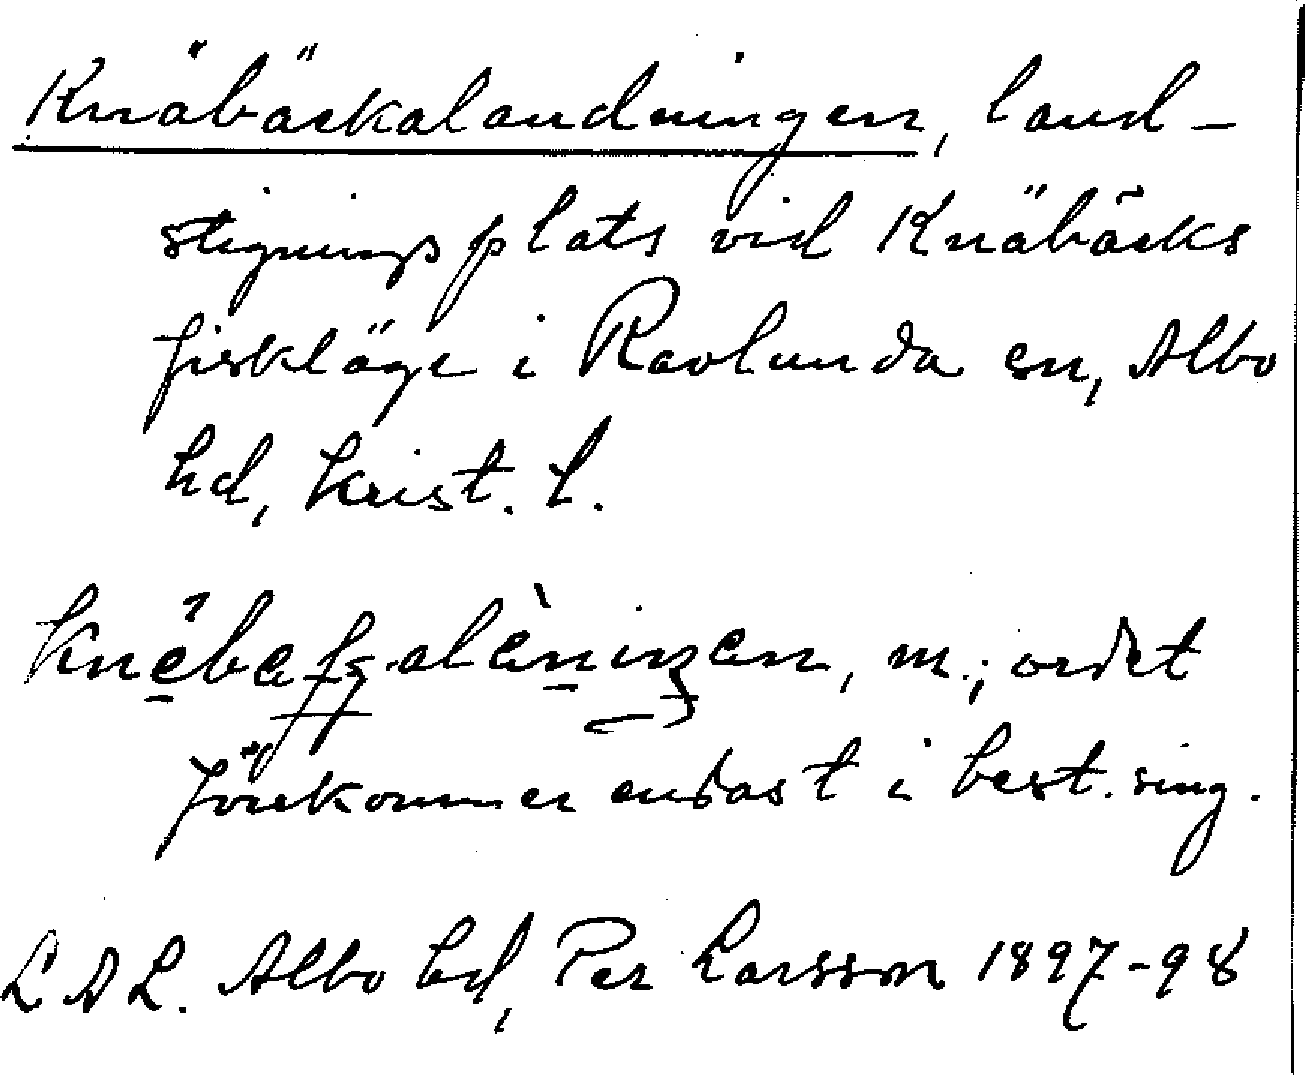 Knäbäckalandningen, land-
stignings plats vid Knäbäcks
fiskläge i Ravlunda sn, Albo
hd, Krist. l.
m.; ordet
förekommer endast i best. sing.
L A L. Albo hd, Per Larsson 1897-98